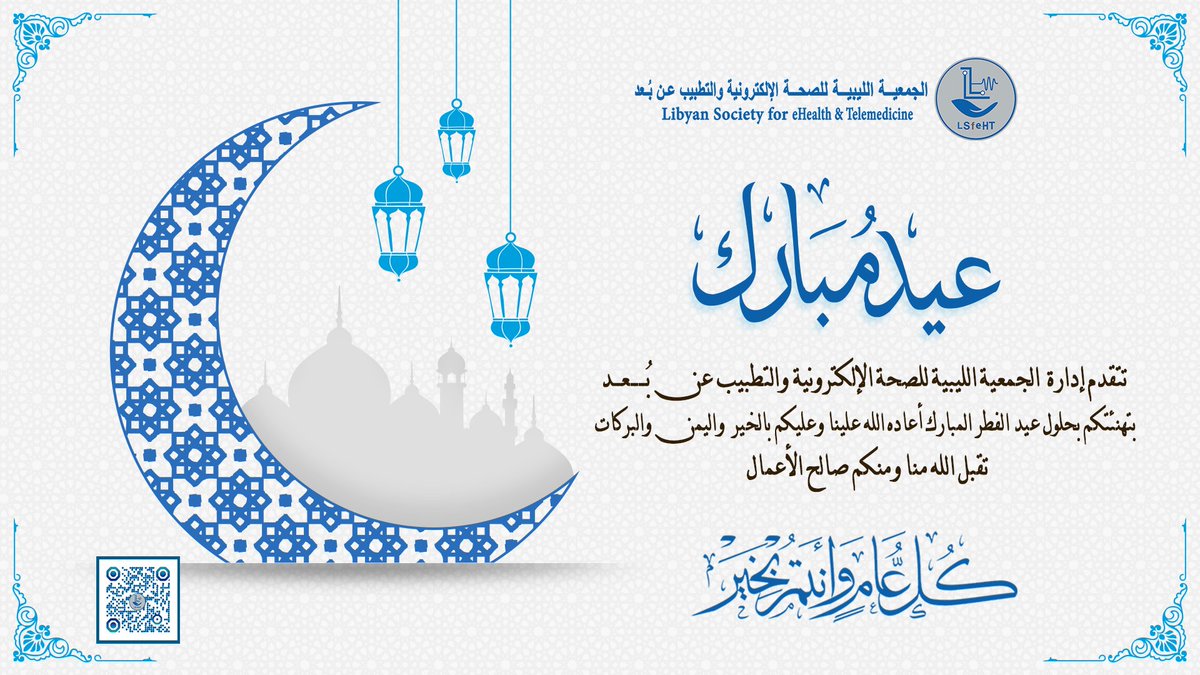 الجمعية الليبية للصحة الإلكترونية والتطبيب عن بُعد
Libyan Society for eHealth & Telemedicine
LSfeHT
عيد مُبَارك
تتقدم إدارة الجمعية الليبية للصحة الإلكترونية والتطبيب عن بُعد
بتهنئتكم بحلول عيد الفطر المبارك أعاده الله علينا وعليكم بالخير واليمن والبركات
تقبل الله منا ومنكم صالح الأعمال
كُل عَامٍ وَأَنتُم بِخَيرٍ